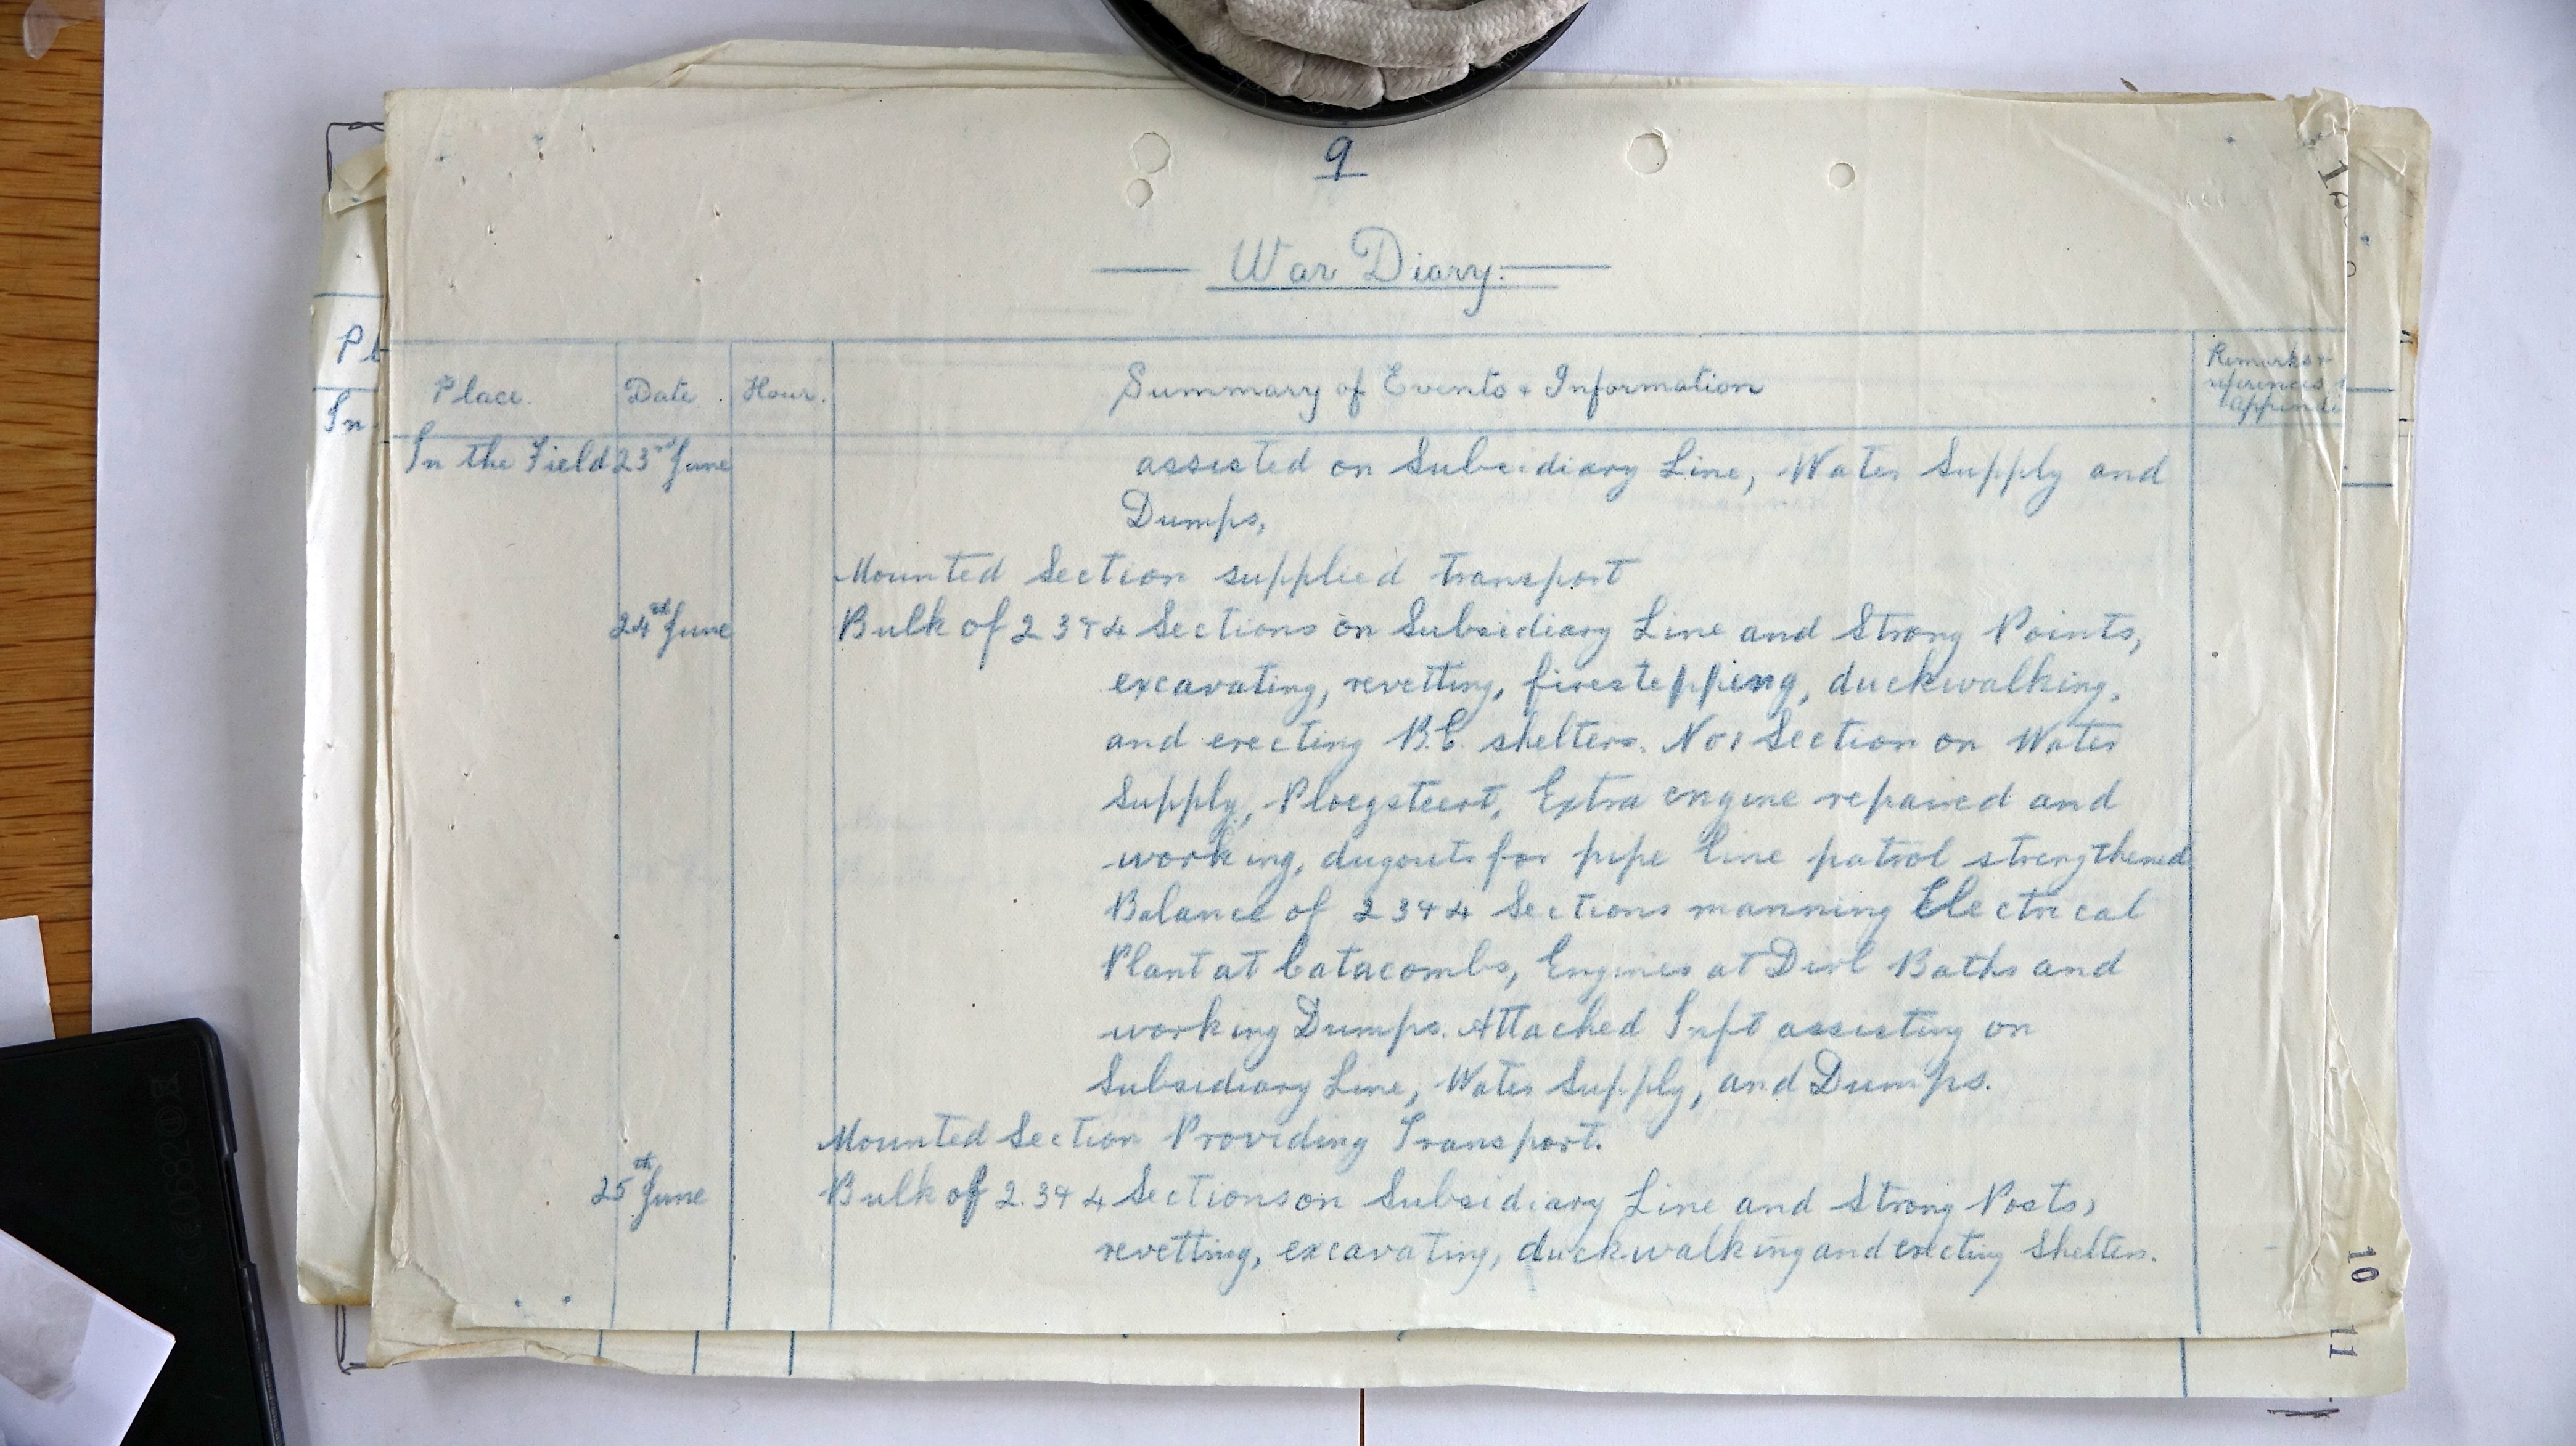 9
War Diary.
Place. Date. Hour. Summary of Events + Information Remarks +
references
appendi
In the Field 23rd June assisted on Subsidiary Line, Water Supply and
Dumps,
Mounted Section supplied transport
24th June Bulk of 2 3 + 4 Sections on Subsidiary Line and Strong Points,
excavating, revetting, firestepping, duckwalking,
and erecting B.E. shelters. No 1 Section on Water
Supply, Ploegsteert, Extra engine repaired and
working, dugouts for pipe line patrol strengthened
Balance of 2 3 + 4 Sections manning Electrical
Plant at Catacombs, Engines at Divl Baths and
working Dumps. Attached Inft assisting on
Subsidiary Line, Water Supply, and Dumps.
Mounted Section Providing Transport.
25th June Bulk of 2. 3 + 4 Sections on Subsidiary Line and Strong Posts,
revetting, excavating, duckwalking and erecting Shelters.
In
10
11